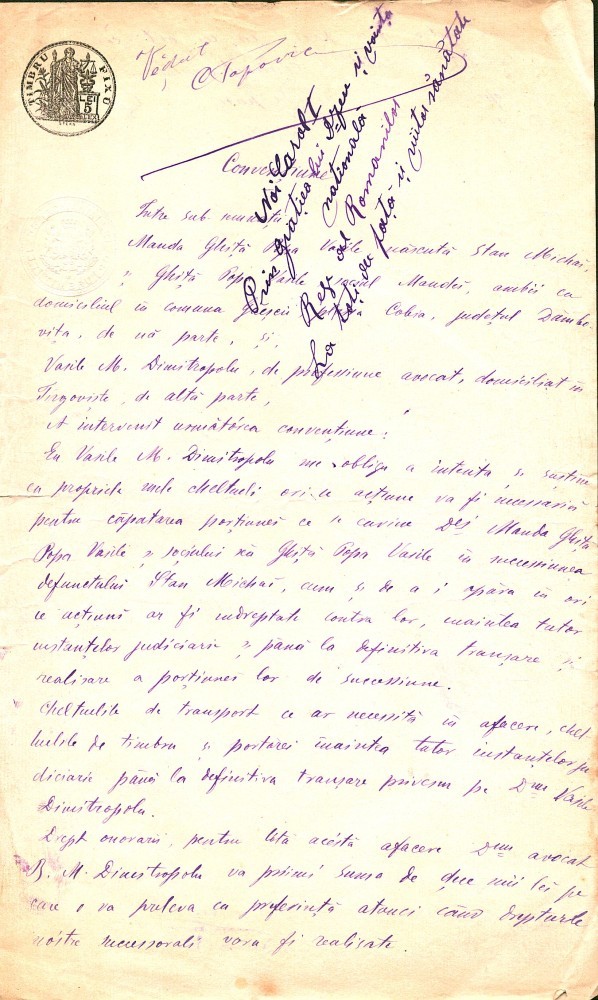 TIMBRU FIXU
5 LEI
Vĕdut
C Popovici
Noi Carol I
Prin grăția lui D-ḑeu și voința
națională
Rege al Romanilor
La toți de față și viitor sănătate
Convențiune
Intre sub numiții
Manda Ghiță Popa Vasile născută Stan Michai,
și Ghiță Popa Vasile soțul Mandei, ambii cu
domiciliul în comuna Cobia, județul Dâmbo-
vița, de uă parte, și,
Vasile M. Dimitropolu, de profesiune avocat, domiciliat în
Tirgoviște, de altă parte,
A intervenit următórea convențiune:
Eu Vasile M. Dimitropolu me oblig a intenta și susține
cu propriele mele cheltueli ori ce acțiune va fi necesariă
pentru căpatarea porțiunei ce se cuvine Dei Manda Ghiță
Popa Vasile și soțiului să Ghiță Popa Vasile în succesiunea
defunctului Stan Michai, cum și de a i apăra în ori
ce acțiuni ar fi indreptate contra lor, inaintea tutor
instanțelor judiciarii și până la definitiva tranșare și
realisare a porțiunei lor de succesiune.
Cheltuelile de transport ce ar necesită în afacere, chel
tuelile de timbru și portărei înaintea tutor instanțelor ju
diciarii până la definitiva tranșare privesc pe Dnu Vasile
Dimitropolu.
Drept onorarii, pentru tótă acéstă afacere Dnu avocat
V. M. Dimitropolu va primi suma de ḑece mii lei pe
care o va preleva cu preferință atunci când drepturile
nóstre succesorali vora fi realisate.